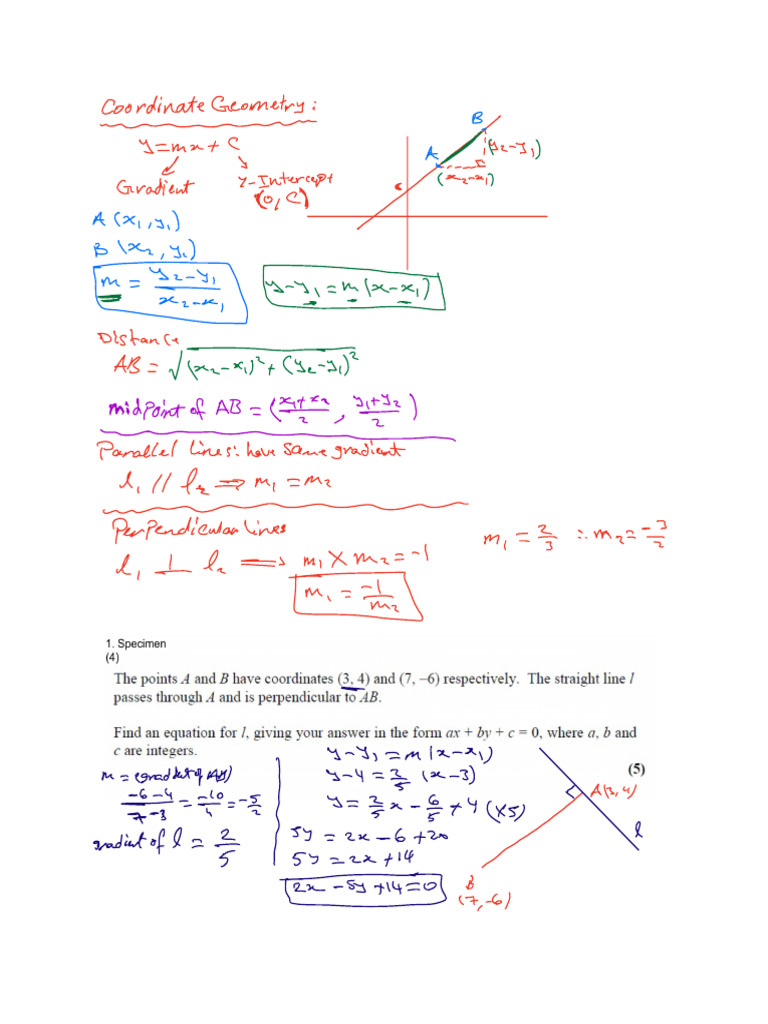 Coordinate Geometry:
y=mx+c
Gradient
y-Intercept
(0, C)
A
B
(y2-y1)
(x2-x1)
c
A (x1, y1)
B (x2, y2)
m = y2-y1 / x2-x1
y-y1 = m(x-x1)
Distance
AB = √(x2-x1)²+(y2-y1)²
midpoint of AB = (x1+x2/2, y1+y2/2)
Parallel Lines: have same gradient
l1 // l2 ⇒ m1 = m2
Perpendicular Lines
l1 ⊥ l2 ⇒ m1 × m2 = -1
m1 = -1/m2
m1 = 2/3 ∴ m2 = -3/2
1. Specimen
(4)
The points A and B have coordinates (3, 4) and (7, –6) respectively. The straight line l
passes through A and is perpendicular to AB.
Find an equation for l, giving your answer in the form ax + by + c = 0, where a, b and
c are integers.
(5)
m = (gradient of AB)
-6-4 / 7-3 = -10/4 = -5/2
gradient of l = 2/5
y-y1 = m(x-x1)
y-4 = 2/5 (x-3)
y = 2/5 x - 6/5 + 4 (×5)
5y = 2x - 6 + 20
5y = 2x + 14
2x - 5y + 14 = 0
A(3, 4)
l
B
(7, -6)